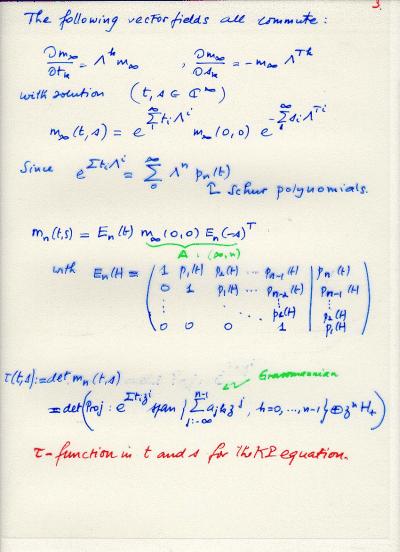 3.
The following vector fields all commute:
∂m∞/∂tₖ = Λᵏ m∞ , ∂m∞/∂sₖ = -m∞ Λᵀᵏ
with solution (t, s ∈ ℂ^∞)
m∞(t,s) = e^{∑₁^∞ tᵢΛⁱ} m∞(0,0) e^{-∑₁^∞ sᵢΛᵀⁱ}
Since e^{ΣtᵢΛⁱ} = ∑₀^∞ Λⁿ pₙ(t)
Schur polynomials.
mₙ(t,s) = Eₙ(t) m∞(0,0) Eₙ(-s)ᵀ
A : (∞,n)
with Eₙ(t) = ( 1 p₁(t) p₂(t) ... pₙ₋₁(t) | pₙ(t)
0 1 p₁(t) ... pₙ₋₂(t) | pₙ₋₁(t)
⋮ ⋱ p₂(t) | p₂(t)
0 0 0 1 | p₁(t) )
τ(t,s) := det mₙ(t,s)
Grassmannian
= det(Proj : e^{Σtᵢzⁱ} span { ∑_{j=-∞}^{n-1} aⱼₖ zʲ, k=0,...,n-1} ⊕ zⁿ H₊)
τ-function in t and s for the KP equation.